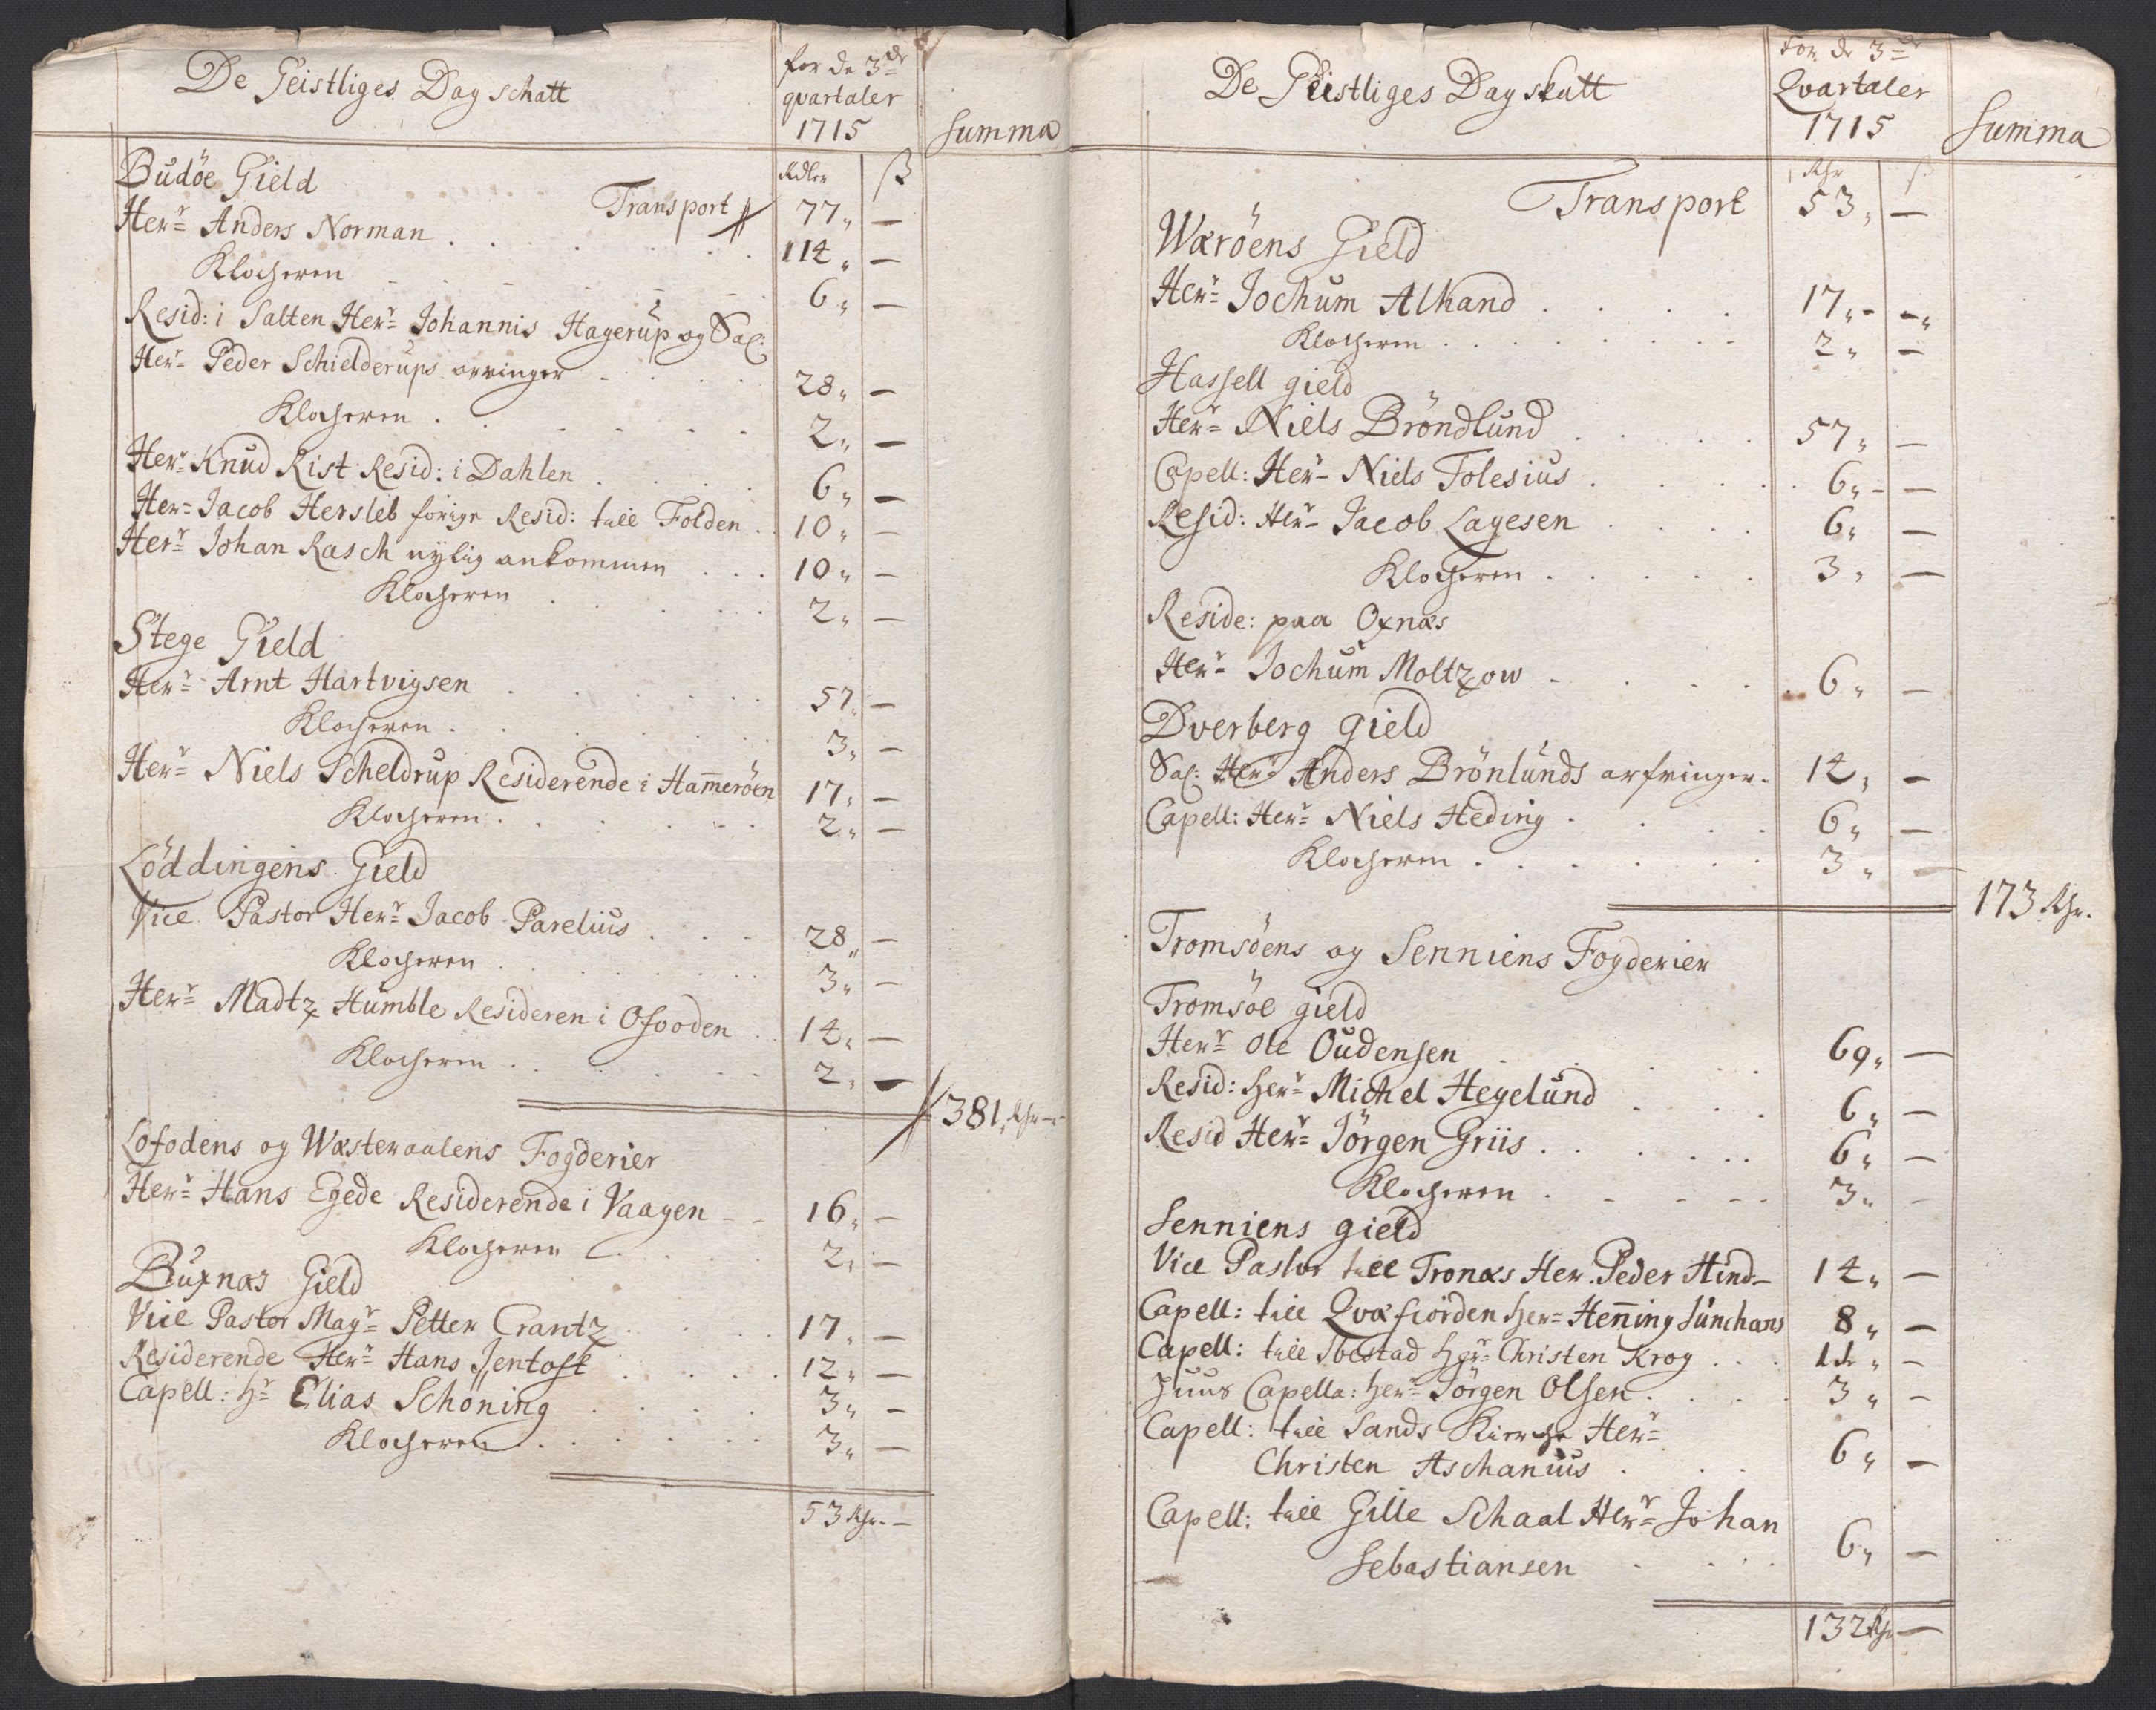 De Geistliges Dag schatt
for de 3de
qvartaler
1715
Summa
Rdler ß
Budöe Gield
Transport 77 " —
Herr Anders Norman . . . 114 " —
Klocheren 6 " —
Resid: i Salten Herr Johannis Hagerup og Sal:
Herr Peder Schielderups arvinger 28 " —
Klocheren 2 " —
Herr Knud Rist Resid: i Dahlen 6 " —
Herr Jacob Hersleb forige Resid: till Folden 10 " —
Herr Johan Rasch nylig ankommen 10 " —
Klocheren 2 " —
Stege Gield
Herr Arnt Hartvigsen 57 " —
Klocheren 3 " —
Herr Niels Scheldrup Residerende i Hameröen 17 " —
Klocheren 2 " —
Löddingens Gield
Vice Pastor Herr Jacob Parelius 28 " —
Klocheren 3 " —
Herr Madtz Humble Resideren i Ofooden 14 " —
Klocheren 2 " —
381 " Rhr —
Lofodens og Wæsteraalens Fogderier
Herr Hans Egede Residerende i Vaagen 16 " —
Klocheren 2 " —
Buxnæs Gield
Vice Pastor Magr Petter Crantz 17 " —
Residerende Herr Hans Jentoft 12 " —
Capell: Hr Elias Schöning 3 " —
Klocheren 3 " —
53 Rhr. —
De Geistliges Dag skatt
For de 3de
Qvartaler
1715
Summa
Rhr ß
Transport 53 " —
Wæröens Gield
Herr Jochum Alhand 17 " —
Klocheren 2 " —
Hassell gield
Herr Niels Bröndlund 57 " —
Capell: Herr Niels Tolesius 6 " —
Resid: Herr Jacob Lagesen 6 " —
Klocheren 3 " —
Reside: paa Oxnæs
Herr Jochum Moltzow 6 " —
Dverberg gield
Sal: Herr Anders Brönlunds arfvinger 14 " —
Capell: Herr Niels Heding 6 " —
Klocheren 3 " —
173 Rhr.
Tromsöens og Senniens Fogderier
Tromsöe gield
Herr Ole Oudensen 69 " —
Resid: Herr Michel Hegelund 6 " —
Resid Herr Jörgen Griis 6 " —
Klocheren 3 " —
Senniens gield
Vice Pastor till Tronæs Her. Peder Hind 14 " —
Capell: till Qvæfiörden Herr Hening Junchans 8 " —
Capell: till Ibestad Herr Christen Krog —
Capella: Herr Jörgen Olsen 3 " —
Capell: till Sands Kierche Herr
Christen Aschanius 6 " —
Capell: till Gille Schaal Herr Johan
Sebastiansen 6 " —
132 Rhr —